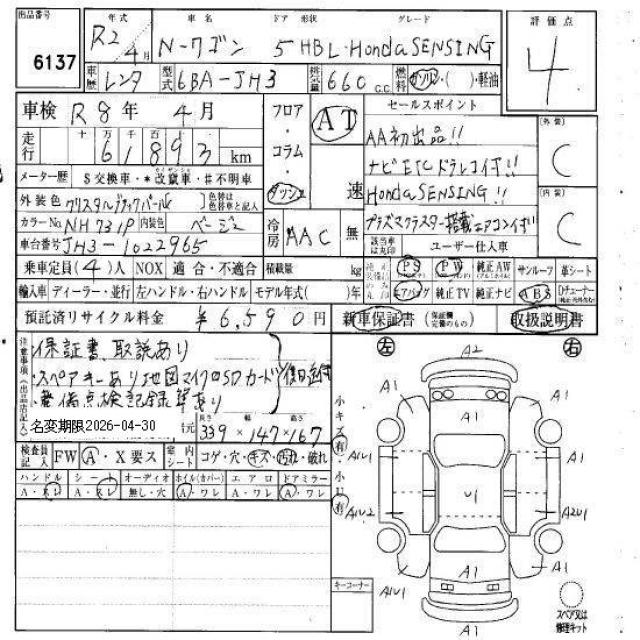 出品番号 年式 車名 ドア 形状 グレード 評価点
6137 R2年4月 N-ワゴン 5 HB L・Honda SENSING 4
車歴 レンタ 型式 6BA-JH3 排気量 660 c.c. 燃料 ガソリン・( )・軽油
車検 R8年 4月 フロア・コラム・ダッシュ AT 速 セールスポイント
走行 十 万 千 百 十 一 61893 km AA初出品!! 外装 C
ナビETCドラレコイす!!
メーター歴 S交換車・*改竄車・#不明車 Honda SENSING!! 内装 C
外装色 クリスタルブラックパール 色替は色替車と記入 プラズマクラスター搭載エアコンイす!
カラーNo. NH731P 内装色 ベージュ 冷房 AAC 無
車台番号 JH3-1022965 該当車は丸印 ユーザー仕入車
乗車定員(4)人 NOX 適合・不適合 積載量 kg PS PW 純正AW サンルーフ 革シート
輸入車 ディーラー・並行 左ハンドル・右ハンドル モデル年式( )年 エアバッグ 純正TV 純正ナビ ABS Dチューナー
預託済リサイクル料金 ¥6,590円 新車保証書 (保証欄完備のもの) 取扱説明書
注意事項(出品店記入) 保証書、取説あり 左 右
スペアキーあり 地図マイクロSDカード 後日送付
整備点検記録簿あり
名変期限2026-04-30
元 長さ 幅 高さ 339×147×167
検査員記入 FW A・X要ス 室内シート コゲ・穴・キズ・汚れ・破れ
ハンドル シート オーディオ ホイル(カバー) エアロ ドアミラー
A・スレ A・スレ 無し・穴 A・ワレ A・ワレ A・ワレ
小キズ 有 ・ 小 有
キーコーナー
A2
A1 A1 A1
AIU1 A1
U1
AIU2 A2U1
A1 A1
AIU1 A1
スペア又は修理キット